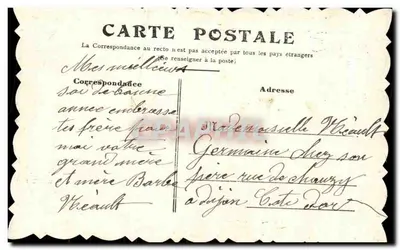 CARTE POSTALE
La Correspondance au recto n'est pas acceptée par tous les pays étrangers
(Se renseigner à la poste)
Correspondance
Adresse
Mes meilleurs
soi de bonne
annee embrasse
tes frère pour
moi votre
grand mère
et mère Barbe
Vicault
Mademoiselle Vicault
Germaine chez son
père rue de chanzy
a dijon Cote d'or